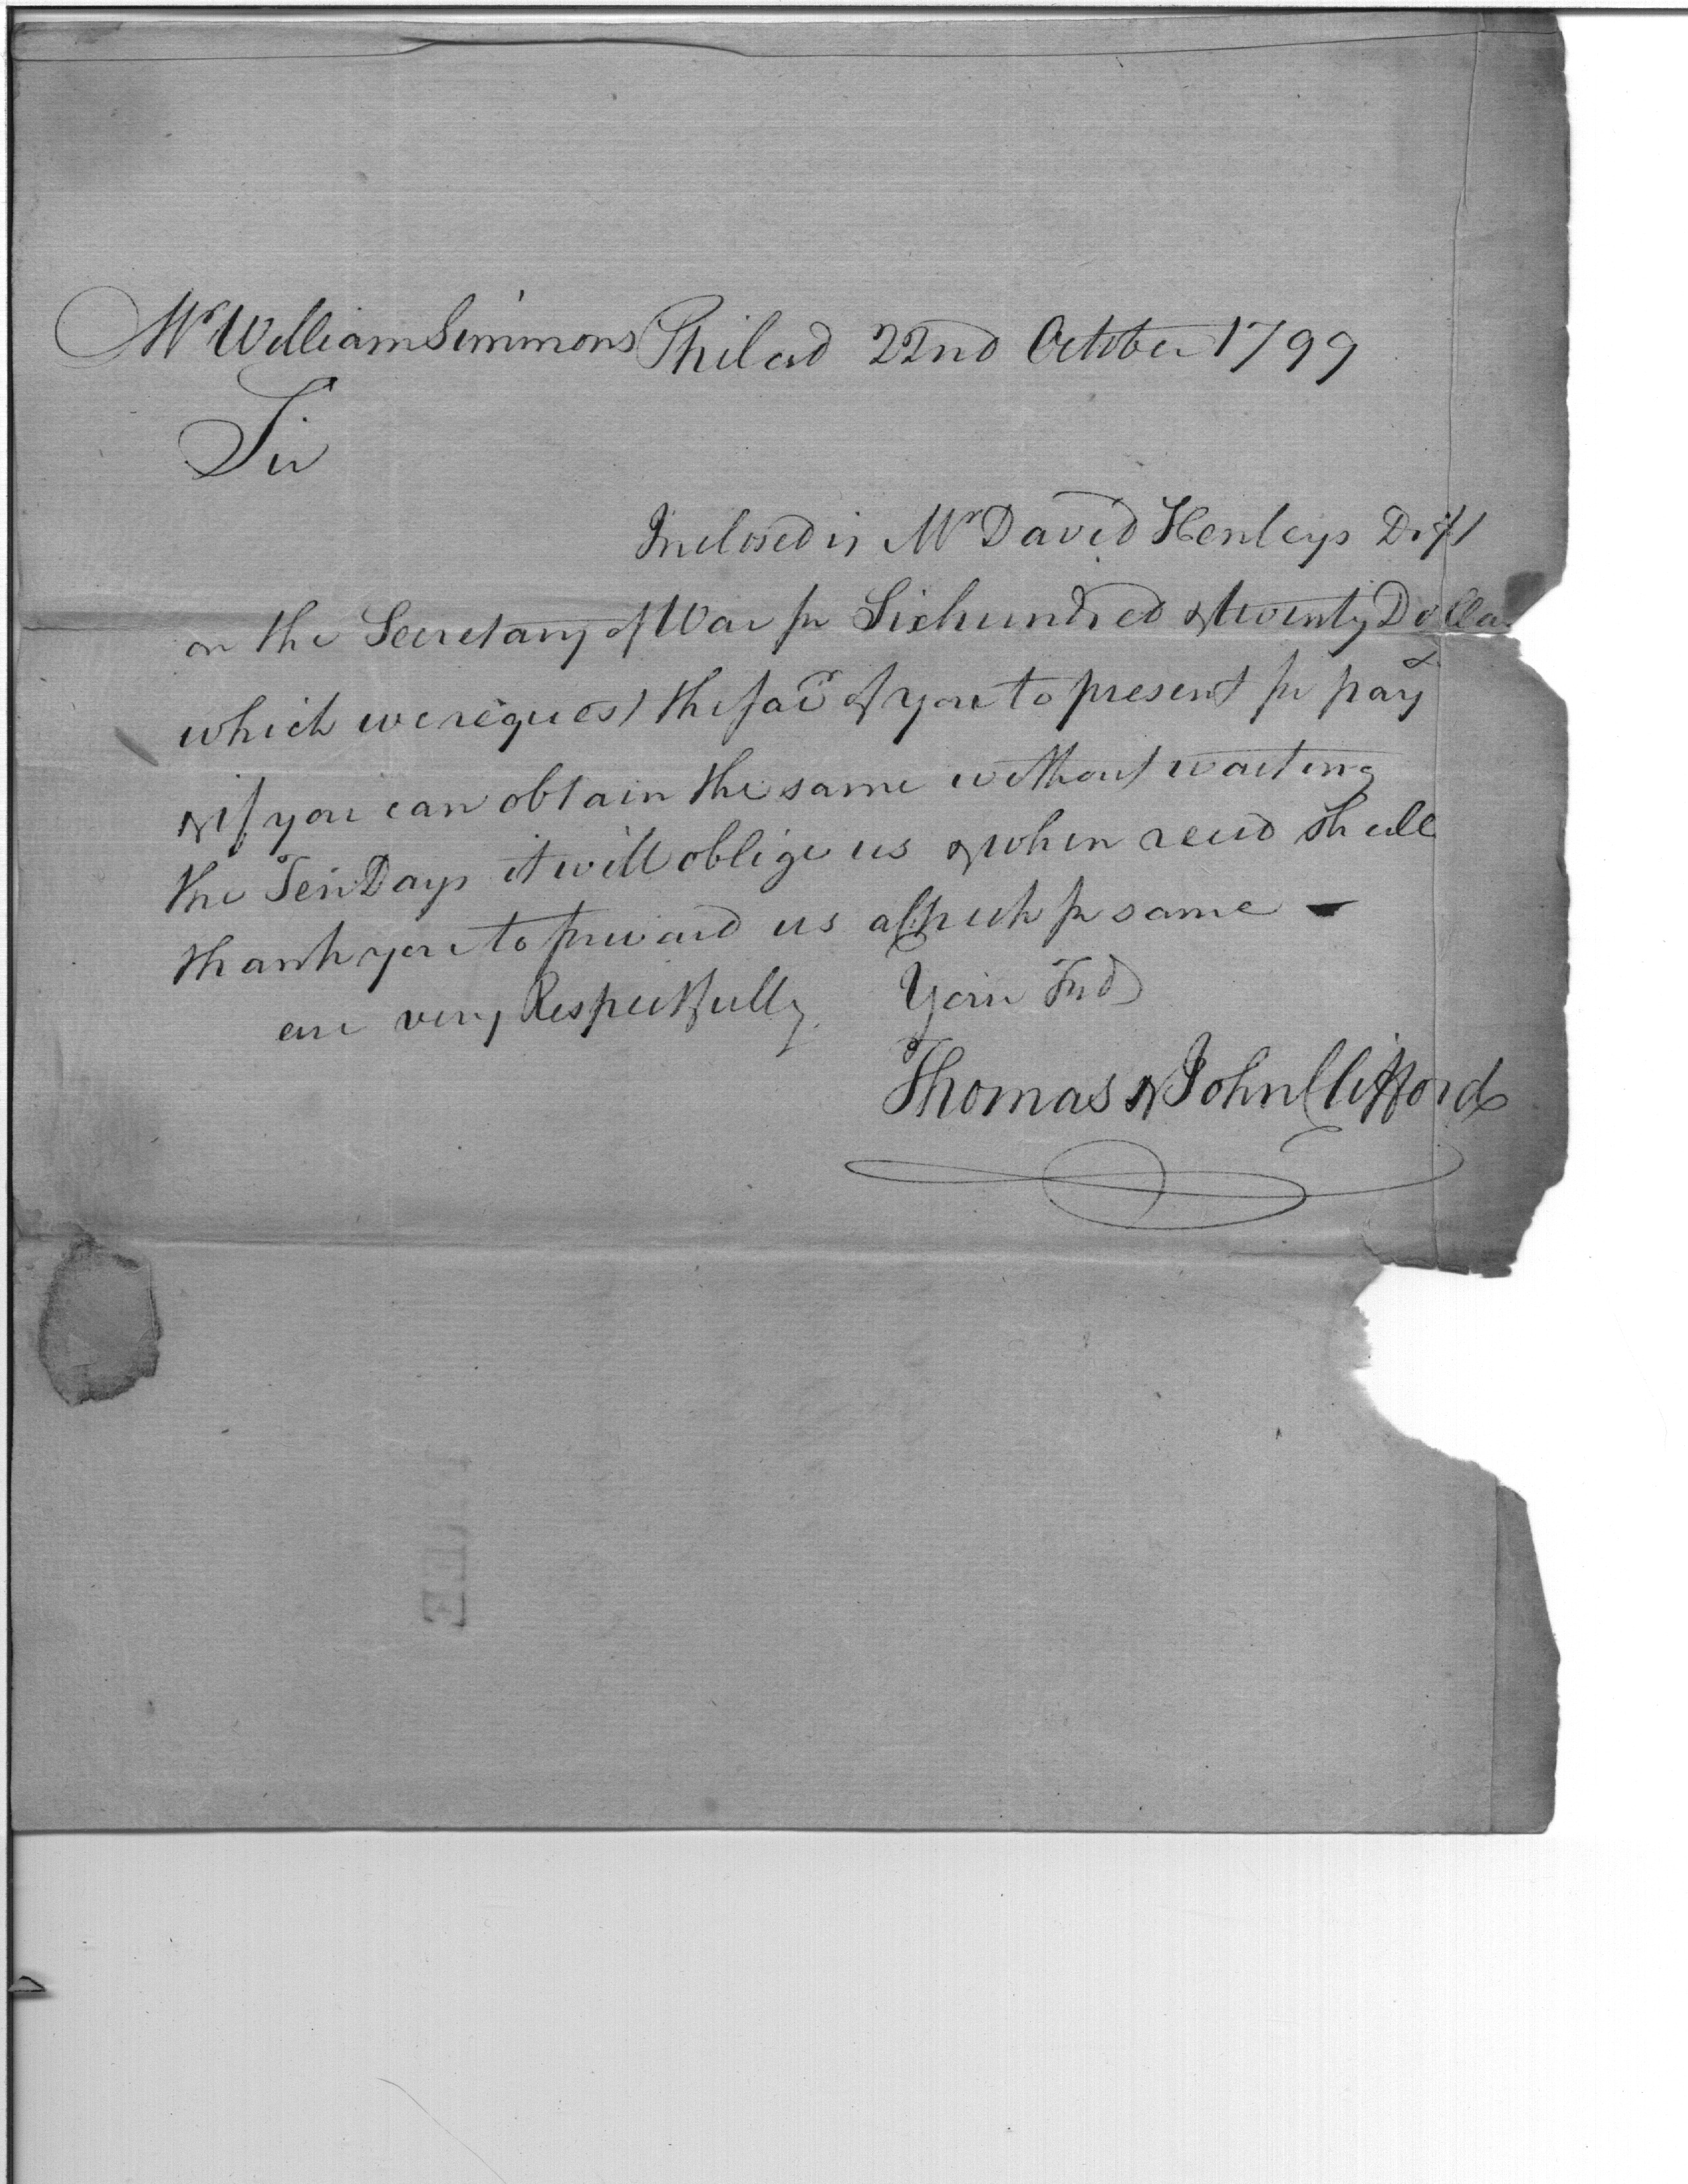 Mr William Simmons Philad 22nd October 1799
Sir
Inclosed is Mr David Henleys Dft
on the Secretary of War for Sixhundred & twenty Dolla
which we request the favr of you to present for pay
& if you can obtain the same without waiting
the Ten Days it will oblige us & when recd shall
thank you to forward us a Check for same
are very Respectfully Your Frd
Thomas & John Clifford